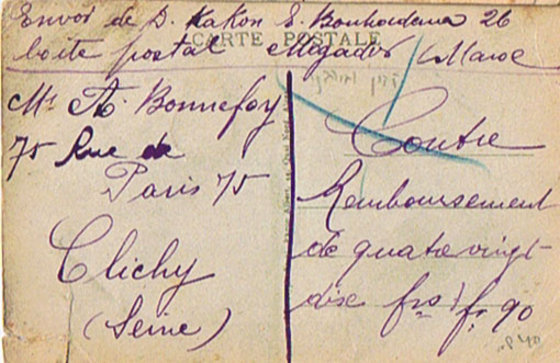 Envoi de D. Kakon E. Bouhadana 26
boîte postal Mogador (Maroc
CARTE POSTALE
Mr A. Bonnefoy
75 Rue de
Paris 75
Clichy
(Seine)
Contre
Remboursement
de quatre vingt
dix frs) fr 90